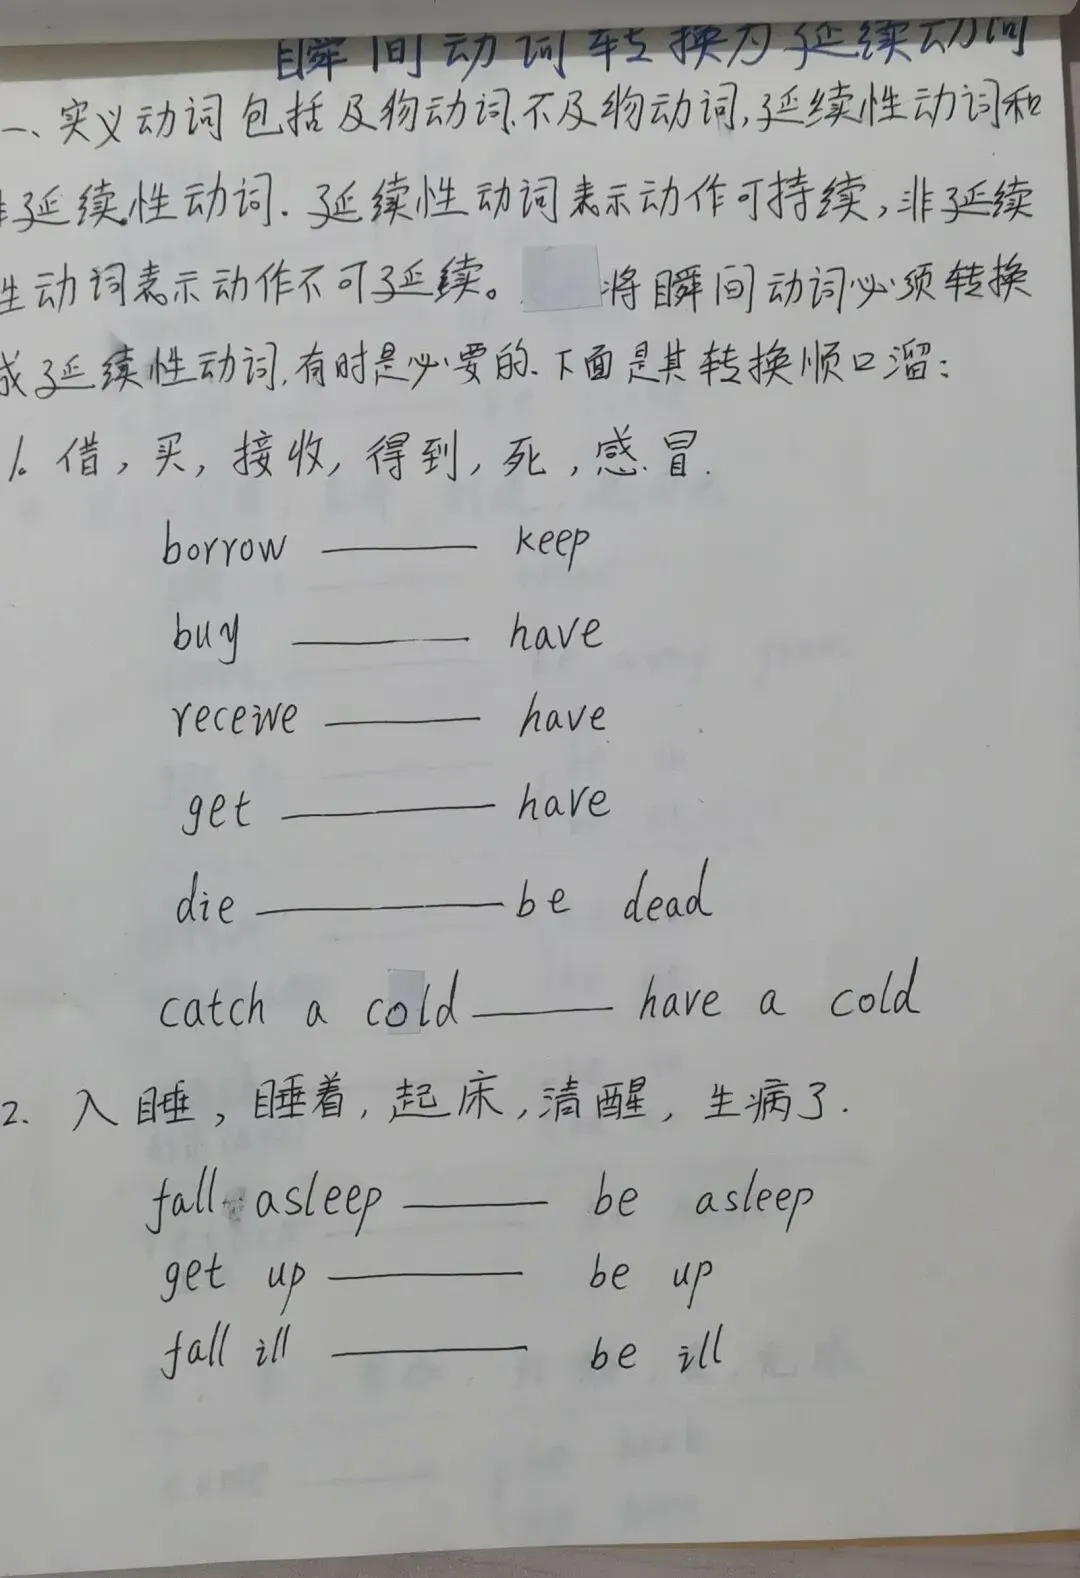 瞬间动词转换为延续动词
一、实义动词包括及物动词、不及物动词,延续性动词和
非延续性动词.延续性动词表示动作可持续,非延续
性动词表示动作不可延续。将瞬间动词必须转换
成延续性动词,有时是必要的.下面是其转换顺口溜:
1。借,买,接收,得到,死,感冒.
borrow —— keep
buy —— have
receive —— have
get —— have
die —— be dead
catch a cold —— have a cold
2. 入睡,睡着,起床,清醒,生病了.
fall asleep —— be asleep
get up —— be up
fall ill —— be ill